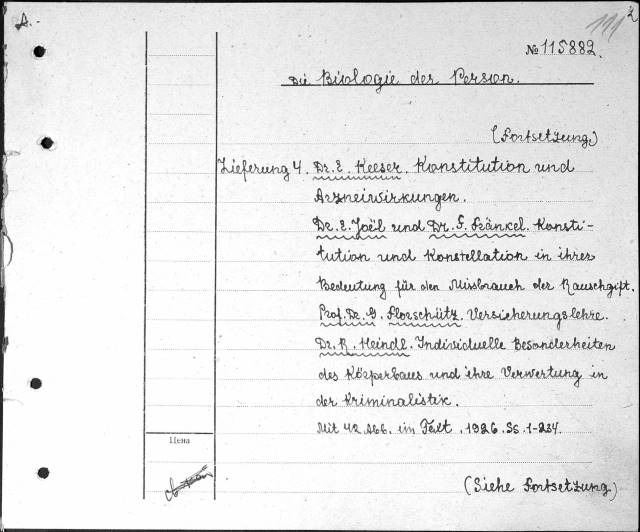 A.
111 2
№ 115882.
Die Biologie der Person.
(Fortsetzung)
Lieferung 4. Dr. E. Keeser. Konstitution und
Arzneiwirkungen.
Dr. E. Joël und Dr. F. Fränkel. Konsti-
tution und Konstellation in ihrer
Bedeutung für den Missbrauch der Rauschgift.
Prof. Dr. G. Florschütz. Versicherungslehre.
Dr. R. Heindl. Individuelle Besonderheiten
des Körperbaus und ihre Verwertung in
der Kriminalistik.
Mit 42 Abb. im Text. 1926. Ss. 1-234.
Цена
(Siehe Fortsetzung)